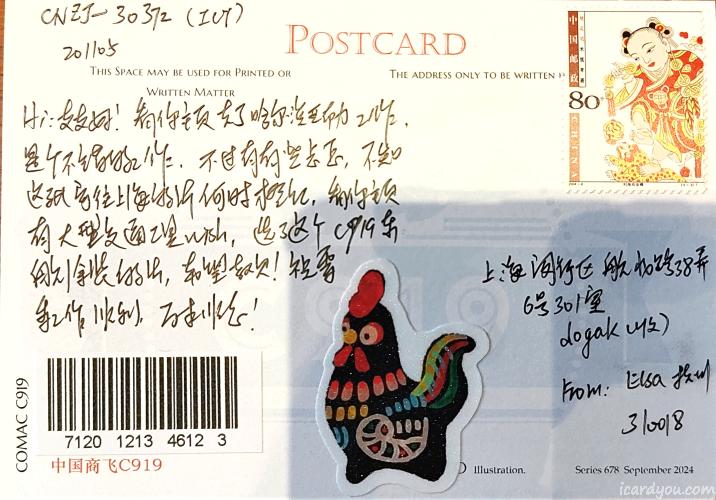 CNZJ-30372 (ICY)
201105
POSTCARD
THIS SPACE MAY BE USED FOR PRINTED OR
WRITTEN MATTER
THE ADDRESS ONLY TO BE WRITTEN
中国邮政
80
CHINA
Hi: 友友好! 看你主页 去了哈尔滨 工作,
是个不错的工作. 不过有有些忐忑, 不知
这张寄往上海的片何时 看你主页
有大型交通工具wish, 选了这个C919东
航 涂装的片, 希望喜欢! 祝
工作顺利, 百事顺意!
上海闵行区航 路38弄
6号301室
dogak (收)
From: Elsa 杭州
310018
COMAC C919
7120 1213 4612 3
中国商飞C919
Illustration.
Series 678 September 2024
icardyou.com